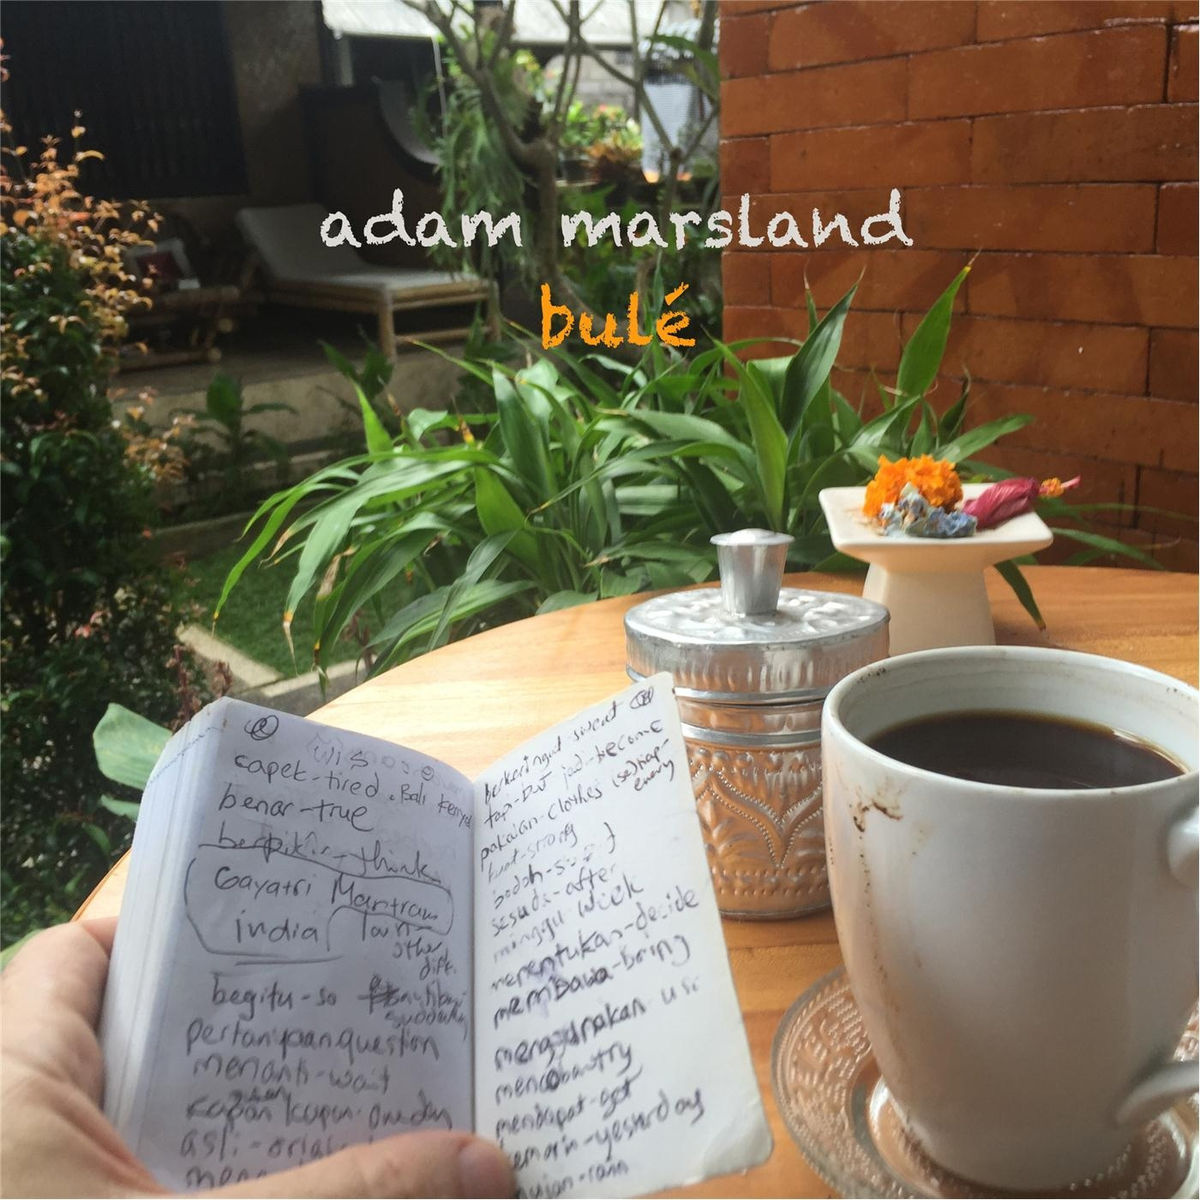 adam marsland
bulé
capek-tired
Bali
benar-true
berpikir-think
Gayatri Mantram
india
lain-
other
diff.
begitu-so
pertanyaan question
menanti-wait
kapan kapan-one day
asli-
berkeringat sweat
jadi-become
pakaian-clothes (se)tiap-
every
kuat-strong
bodoh-
sesuda-after
minggu-week
menentukan-decide
membawa-bring
menggunakan-use
mencoba-try
mendapat-get
kemarin-yesterday
hujan-rain